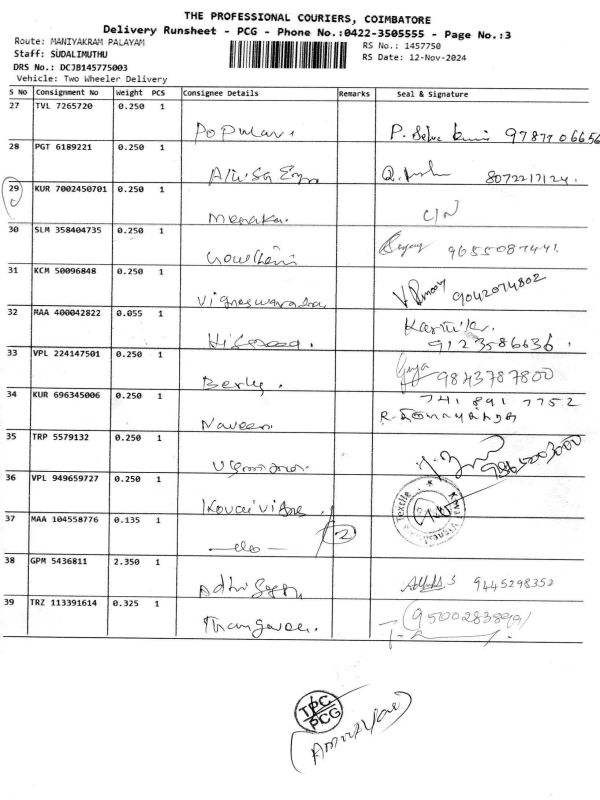 THE PROFESSIONAL COURIERS, COIMBATORE
Delivery Runsheet - PCG - Phone No.:0422-3505555 - Page No.:3
Route: MANIYAKRAM PALAYAM
RS No.: 1457750
Staff: SUDALIMUTHU
RS Date: 12-Nov-2024
DRS No.: DCJB145775003
Vehicle: Two Wheeler Delivery
S No Consignment No Weight PCS Consignee Details Remarks Seal & Signature
27 TVL 7265720 0.250 1
Popular P. 9787706656
28 PGT 6189221 0.250 1
8072217124.
29 KUR 7002450701 0.250 1
Menaka. C/N
30 SLM 358404735 0.250 1
9655087441.
31 KCM 50096848 0.250 1
Vigneswaradra 9042074802
32 MAA 400042822 0.055 1
Karthik.
9123586636.
33 VPL 224147501 0.250 1
Berly. Guja 9843787800
34 KUR 696345006 0.250 1
741 891 7752
Naveen R.
35 TRP 5579132 0.250 1
36 VPL 949659727 0.250 1
Kovai Vignes
Kovai Vignesh Textile
37 MAA 104558776 0.135 1
-do- 2
38 GPM 5436811 2.350 1
9445298352
39 TRZ 113391614 0.325 1
Thangavel. 9500283899
TPC
PCG